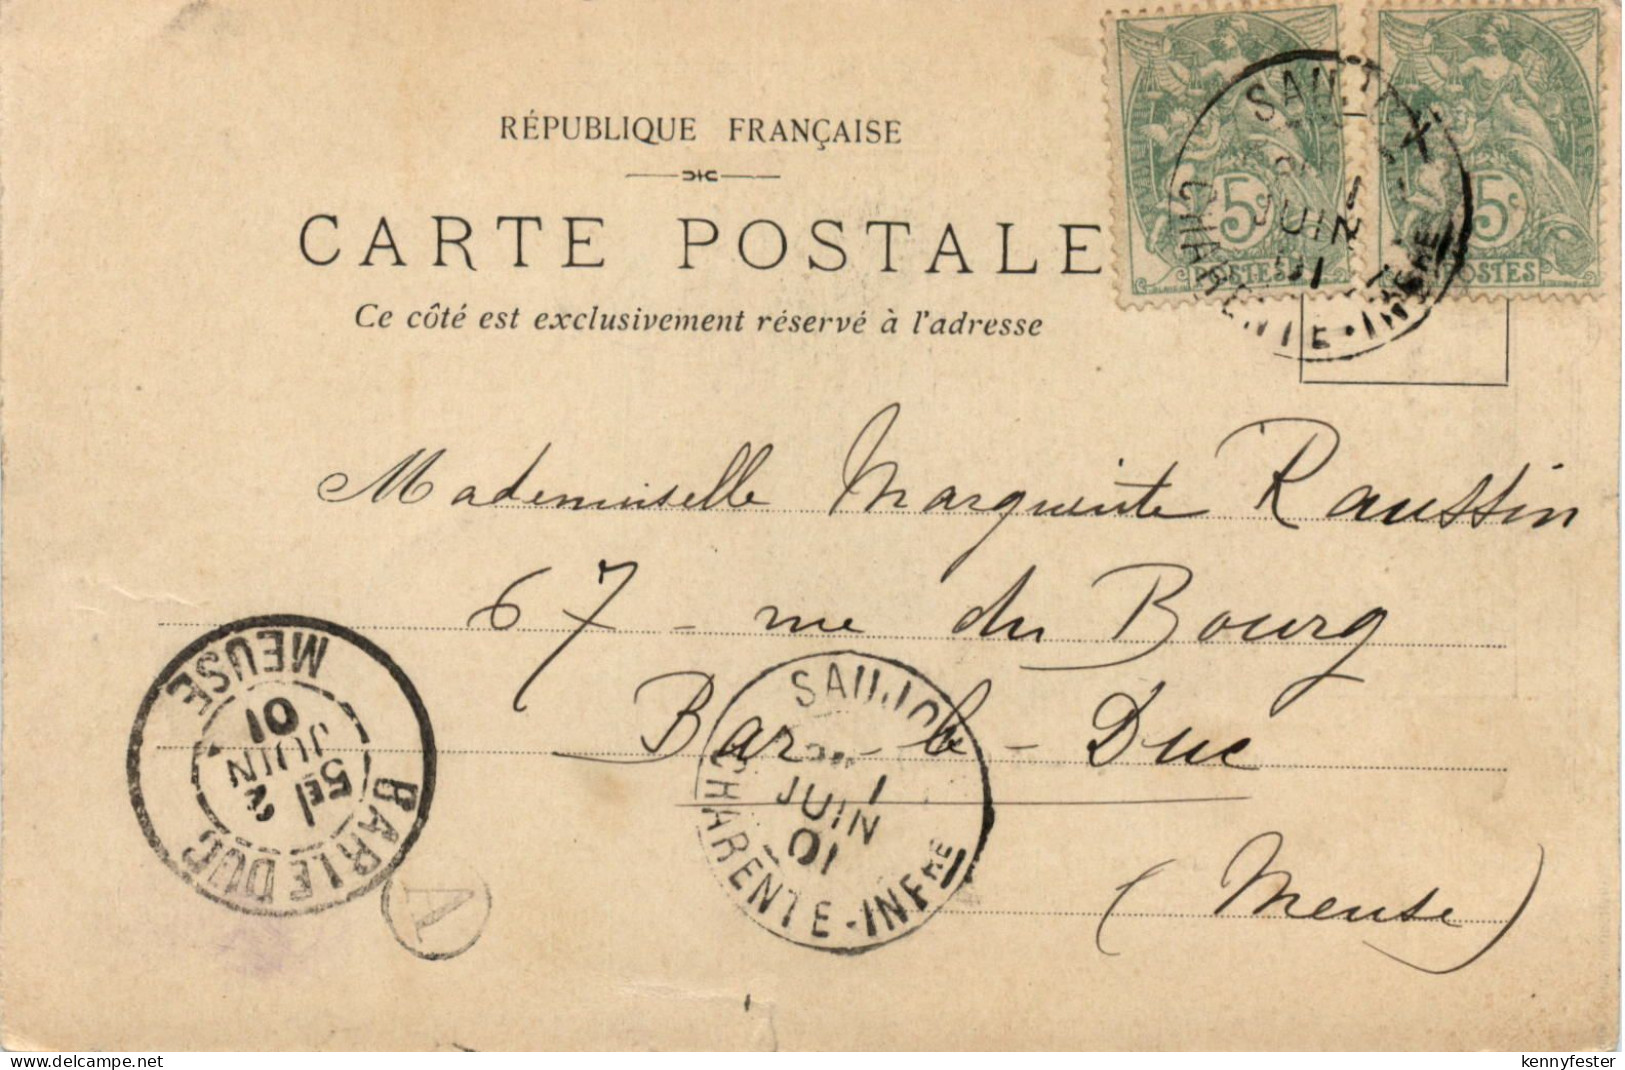 RÉPUBLIQUE FRANÇAISE
CARTE POSTALE
Ce côté est exclusivement réservé à l'adresse
5c
POSTES
5c
POSTES
SAUJON
1
JUIN
01
CHARENTE-INFRE
Mademoiselle Marguerite Raussin
67 - rue du Bourg
Bar-le-Duc
(Meuse)
SAUJON
1
JUIN
01
CHARENTE-INFRE
BAR LE DUC
5E
2
JUIN
01
MEUSE
A
delcampe.net
kennyfester